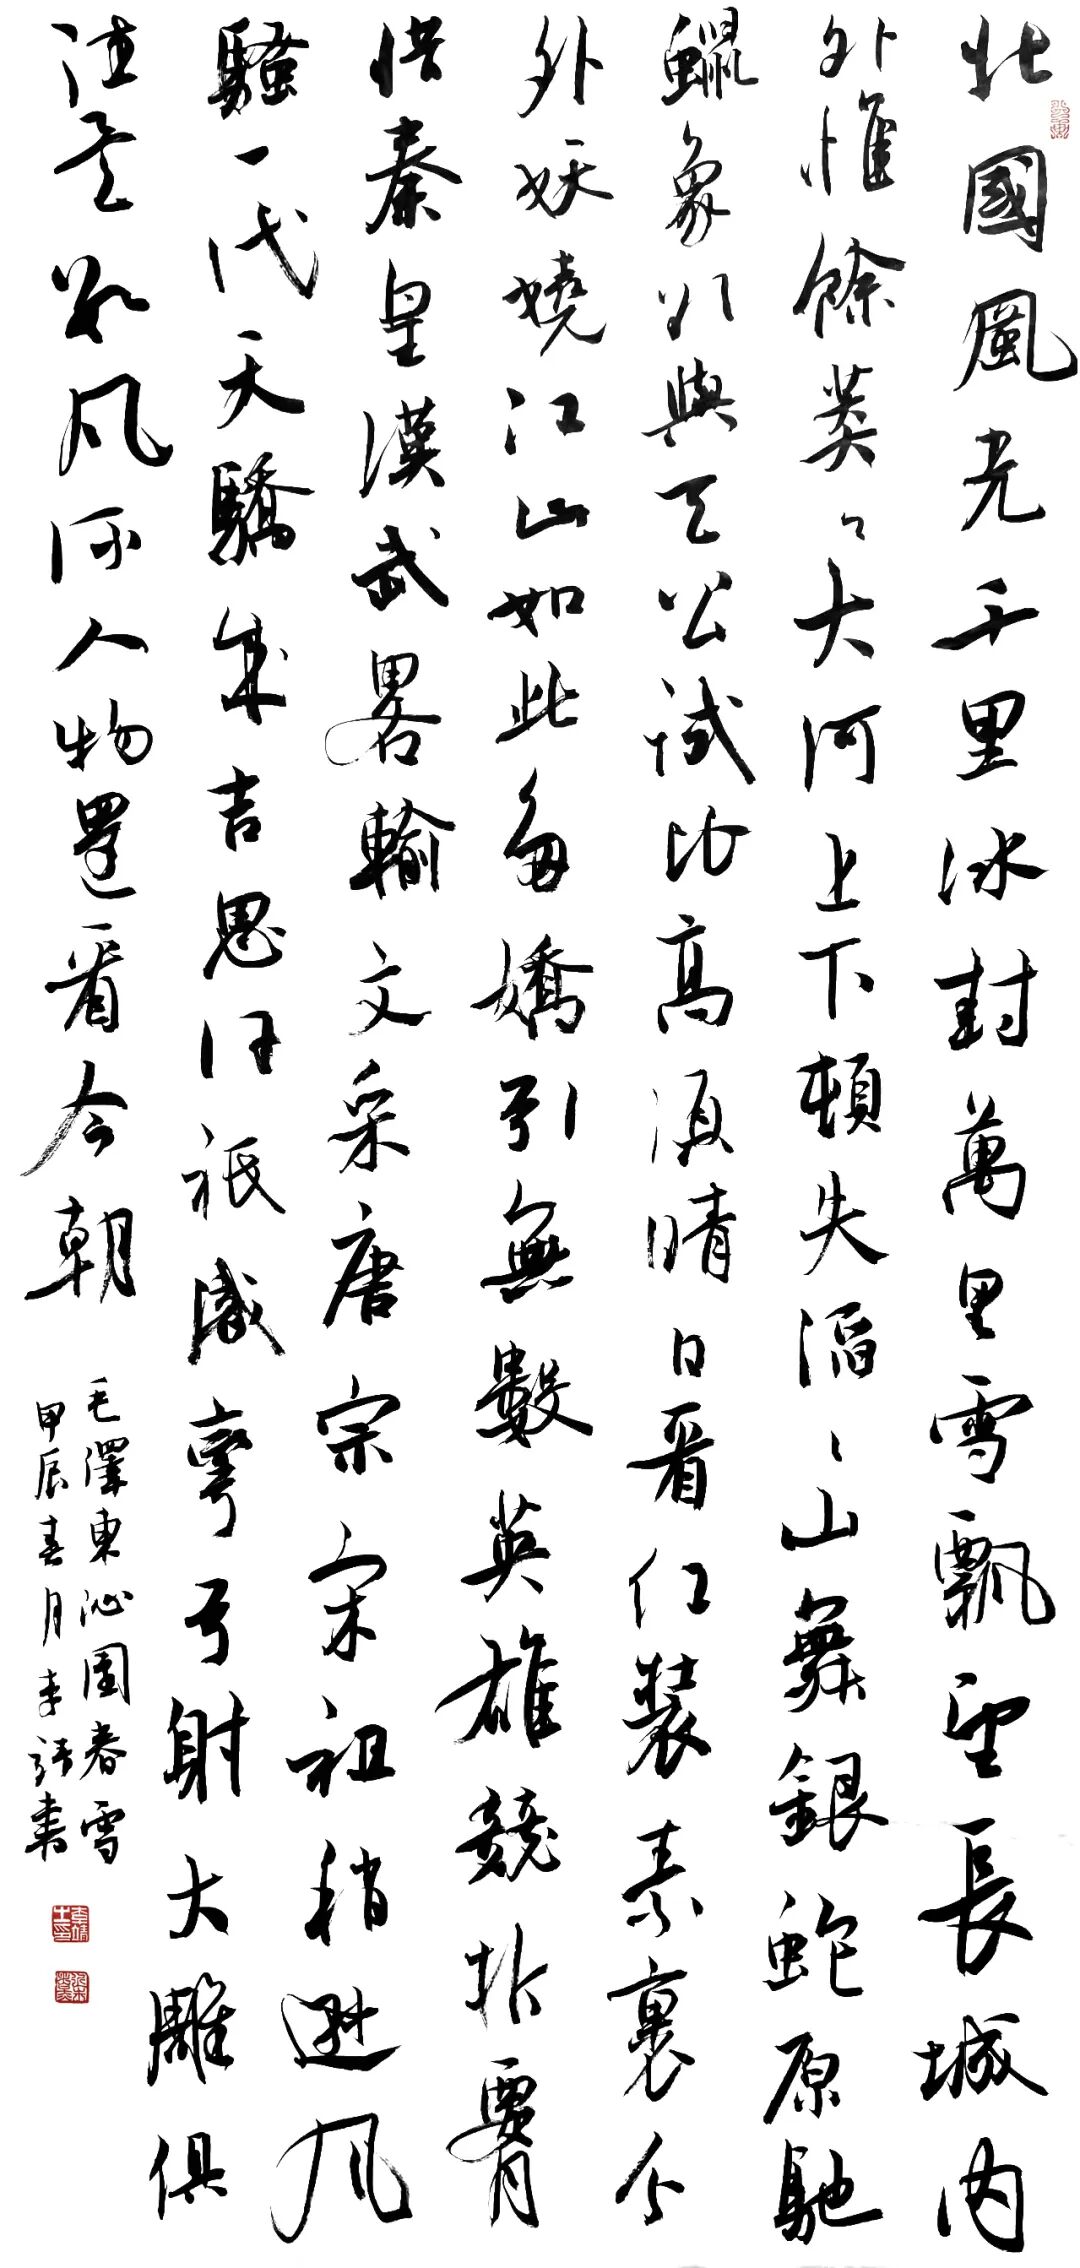 北國風光千里冰封萬里雪飄望長城內
外惟餘莽〻大河上下頓失滔〻山舞銀蛇原馳
蠟象欲與天公試比高須晴日看紅裝素裹分
外妖嬈江山如此多嬌引無數英雄競折腰
惜秦皇漢武畧輸文采唐宗宋祖稍遜風
騷一代天驕成吉思汗祇識彎弓射大雕俱
往矣數風流人物還看今朝
毛澤東沁園春雪
甲辰春月李靖書